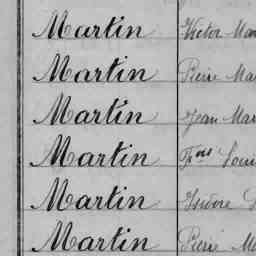 Martin Victor Mar
Martin Pierre Ma
Martin Jean Mar
Martin Fçois Loui
Martin Isidore
Martin Pierre M